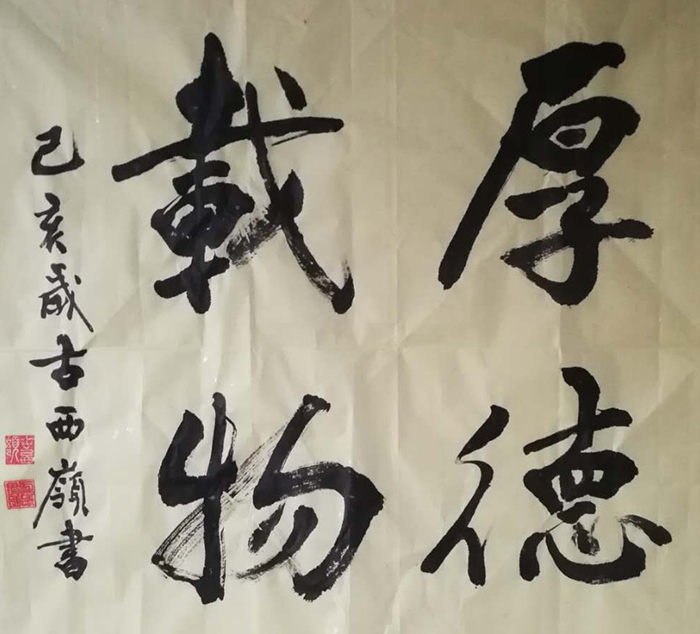 厚德
載物
己亥歲古西嶺書